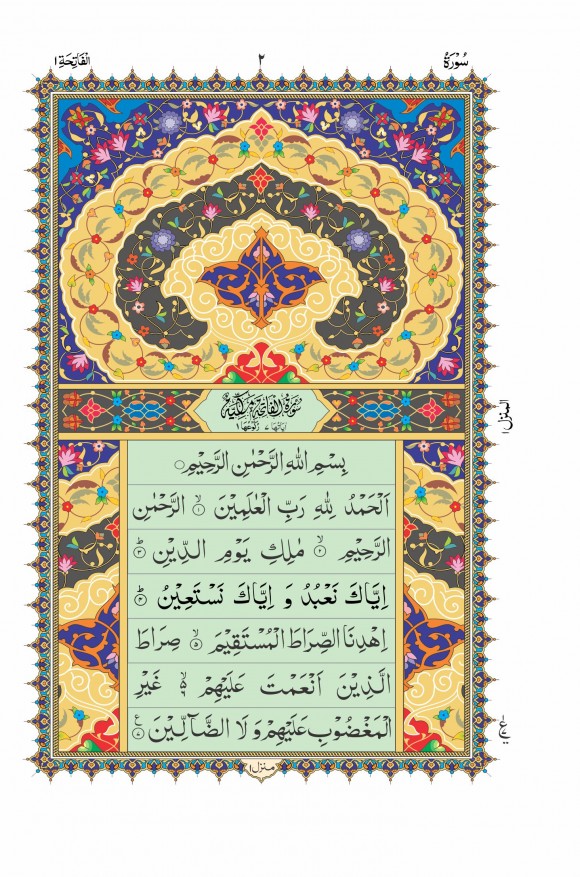 سُوْرَةُ
٢
اَلْفَاتِحَةِ ١
سُوْرَةُ الْفَاتِحَةِ مَكِّيَّةٌ
اٰيَاتُهَا ٧ رُكُوْعُهَا ١
بِسْمِ اللّٰهِ الرَّحْمٰنِ الرَّحِيْمِ
اَلْحَمْدُ لِلّٰهِ رَبِّ الْعٰلَمِيْنَ ۙ‏﴿۱﴾ الرَّحْمٰنِ
الرَّحِيْمِ ۙ‏﴿۲﴾ مٰلِكِ يَوْمِ الدِّيْنِ ؕ‏﴿۳﴾
اِيَّاكَ نَعْبُدُ وَ اِيَّاكَ نَسْتَعِيْنُ ؕ‏﴿۴﴾
اِهْدِنَا الصِّرَاطَ الْمُسْتَقِيْمَ ۙ‏﴿۵﴾ صِرَاطَ
الَّذِيْنَ اَنْعَمْتَ عَلَيْهِمْ ۙ۬‏﴿۶﴾ غَيْرِ
الْمَغْضُوْبِ عَلَيْهِمْ وَ لَا الضَّآلِّيْنَ ﴿۷﴾ ع
المنزل ١
ع
منزل ١